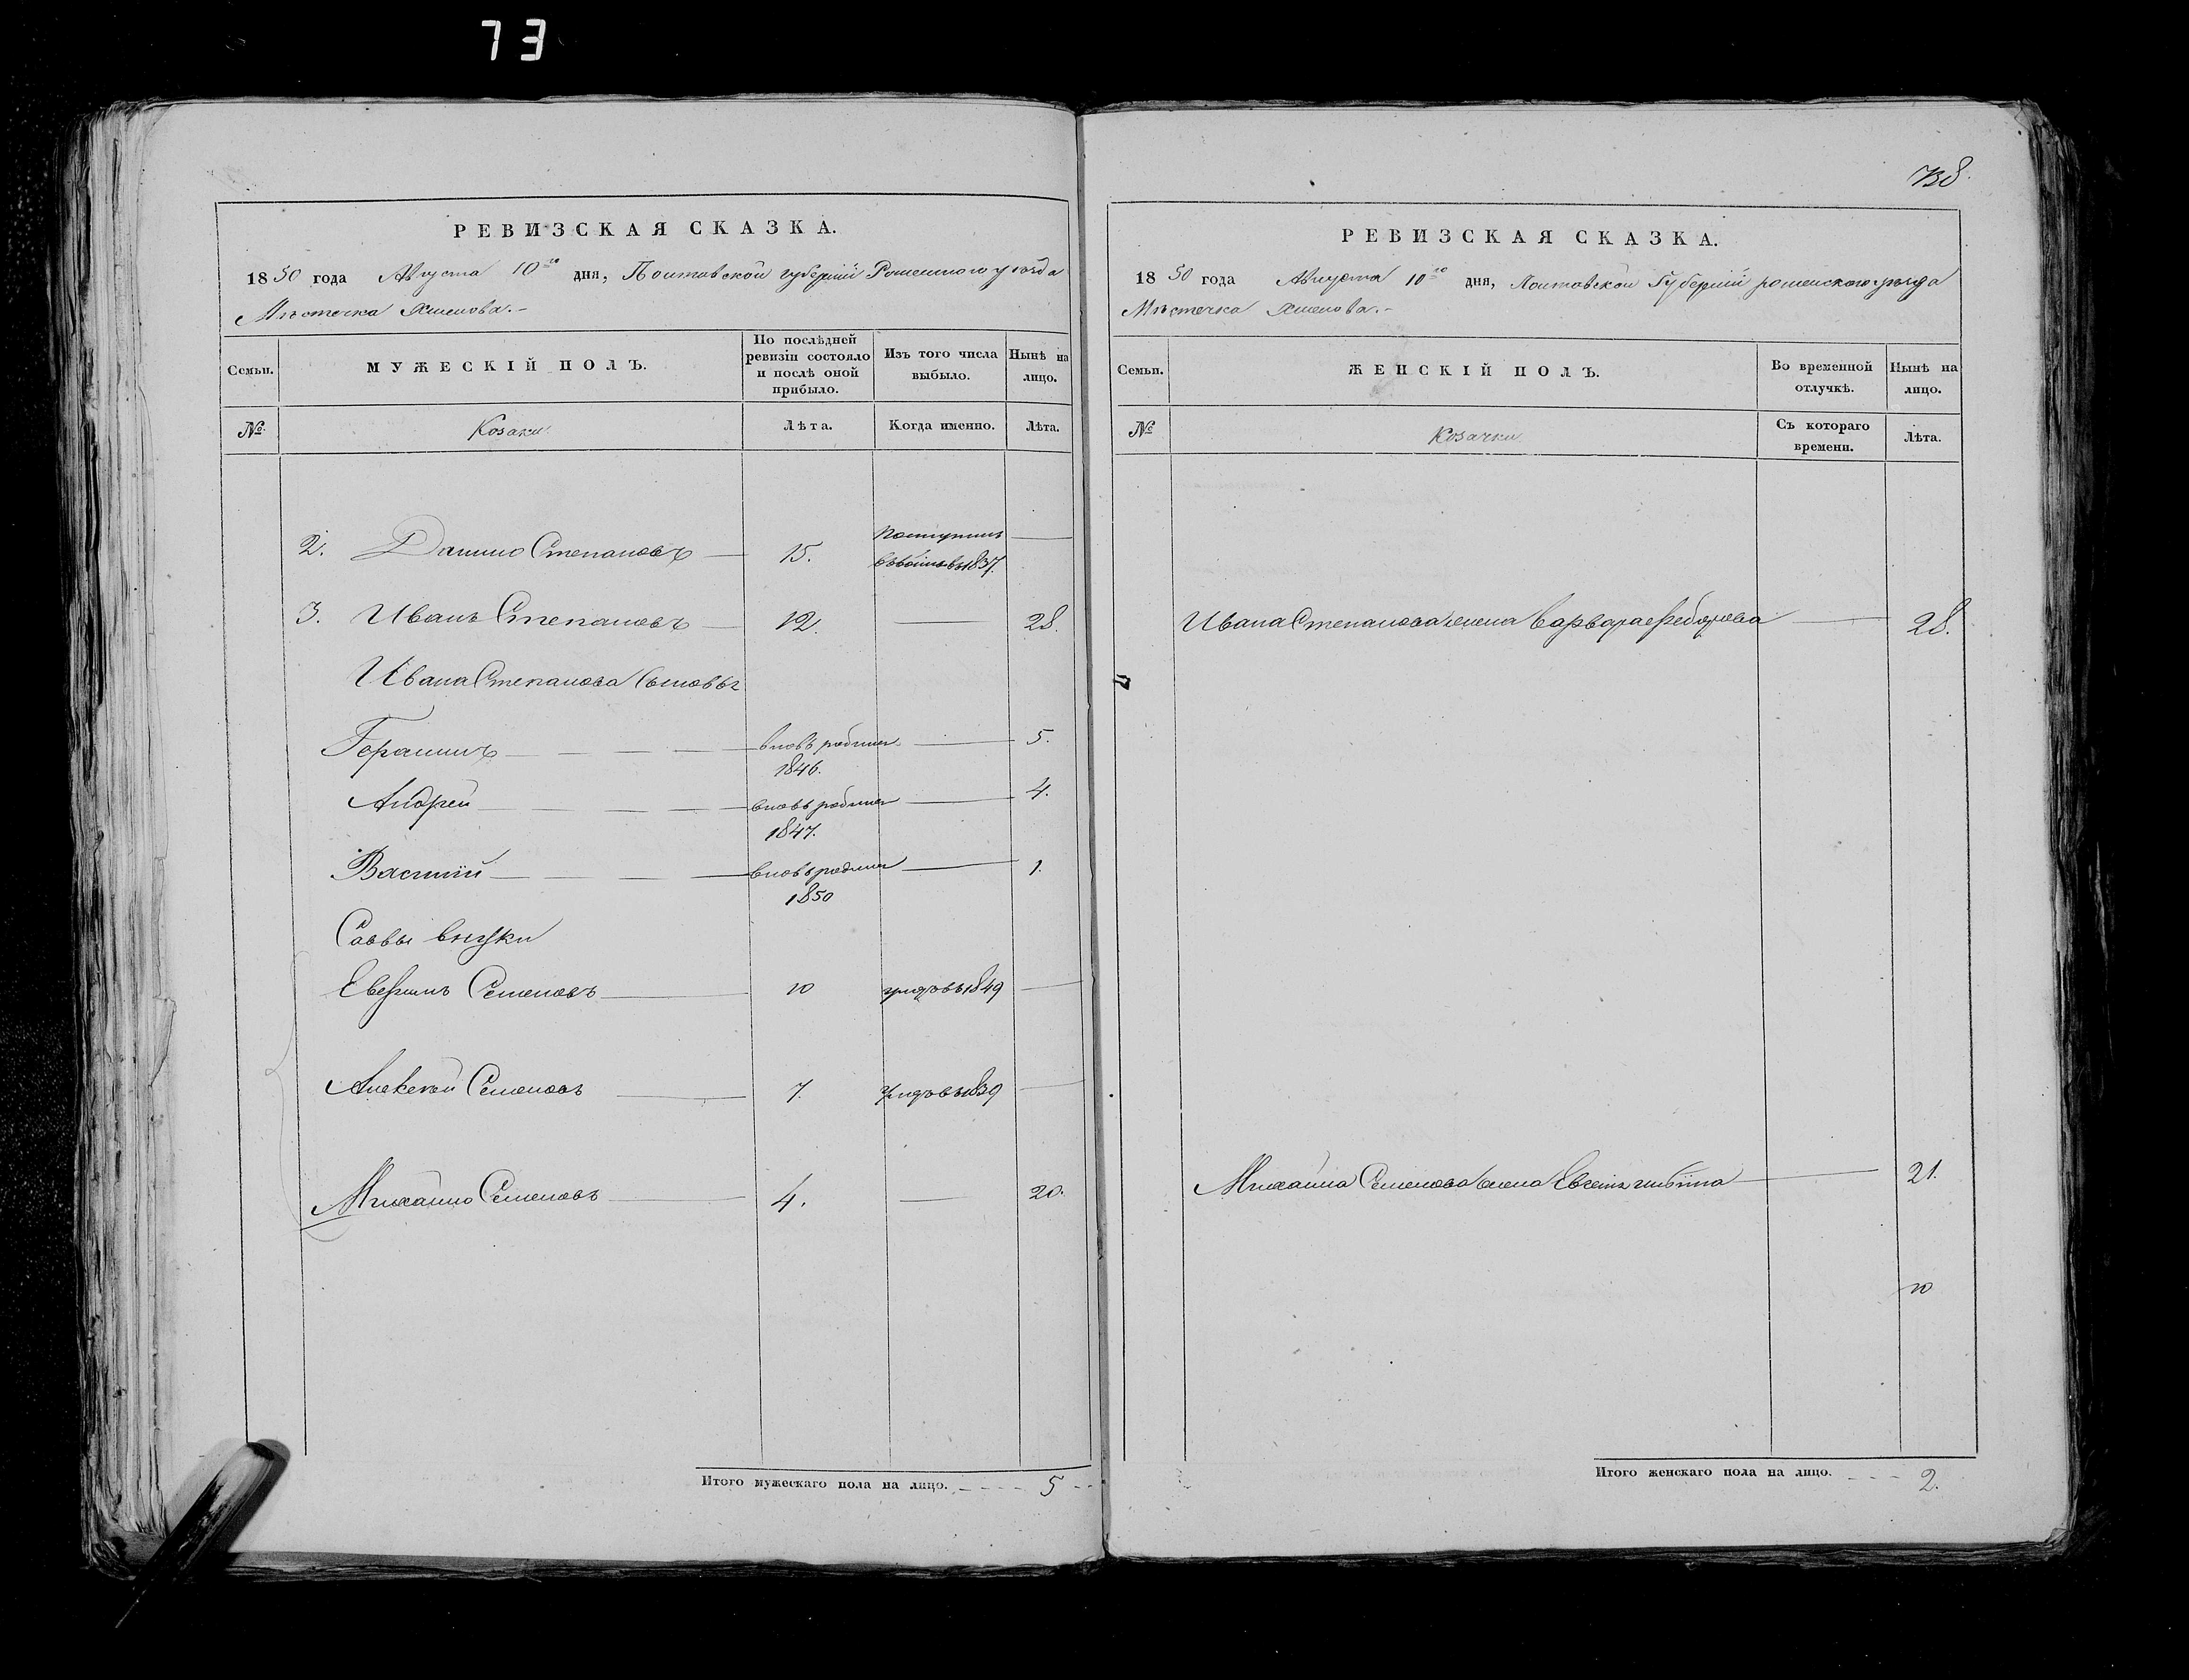 73
738.
РЕВИЗСКАЯ СКАЗКА.
1850 года Августа 10го дня, Полтавской губерніи Роменского уезда
Мѣстечка Хмелова.-
Семьи.
МУЖЕСКІЙ ПОЛЪ.
По послѣдней ревизіи состояло и послѣ оной прибыло.
Изъ того числа выбыло.
Нынѣ на лицо.
№
Козаки.
Лѣта.
Когда именно.
Лѣта.
2. Данило Степановъ 15. Поступилъ
въ 1837.
3. Иванъ Степановъ 12. 28.
Ивана Степанова Сыновья
Герасимъ вновь родился 5.
1846.
Андрей вновь родился 4.
1847.
Василій вновь родился 1.
1850
Саввы внуки
Евфимъ Семеновъ 10 умеръ въ 1849
Алексѣй Семеновъ 7. умеръ въ 1839
Михайло Семеновъ 4. 20.
Итого мужескаго пола на лицо. 5
РЕВИЗСКАЯ СКАЗКА.
1850 года Августа 10го дня, Полтавской Губерніи роменского уезда
Мѣстечка Хмелова.-
Семьи.
ЖЕНСКІЙ ПОЛЪ.
Во временной отлучкѣ.
Нынѣ на лицо.
№
Козачки
Съ котораго времени.
Лѣта.
Ивана Степанова жена Варвара Федорова 28.
Михайла Семенова жена 21.
10
Итого женскаго пола на лицо. 2.